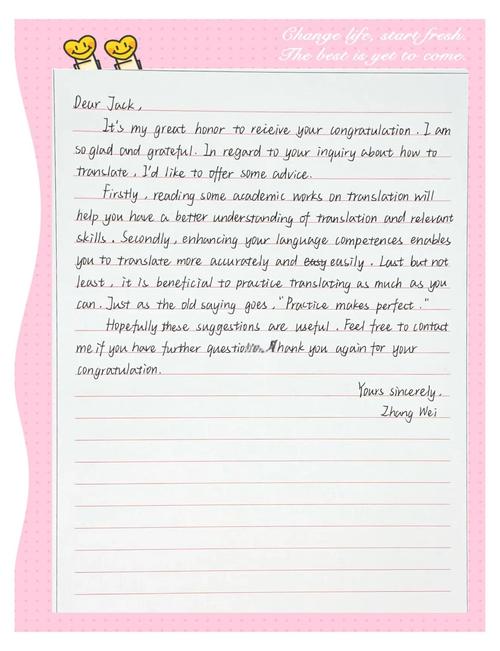 Change life, start fresh.
The best is yet to come.
Dear Jack,
It's my great honor to receive your congratulation. I am
so glad and grateful. In regard to your inquiry about how to
translate, I'd like to offer some advice.
Firstly, reading some academic works on translation will
help you have a better understanding of translation and relevant
skills. Secondly, enhancing your language competences enables
you to translate more accurately and easy easily. Last but not
least, it is beneficial to practice translating as much as you
can. Just as the old saying goes, "Practice makes perfect."
Hopefully these suggestions are useful. Feel free to contact
me if you have further questions. Thank you again for your
congratulation.
Yours sincerely,
Zhang Wei